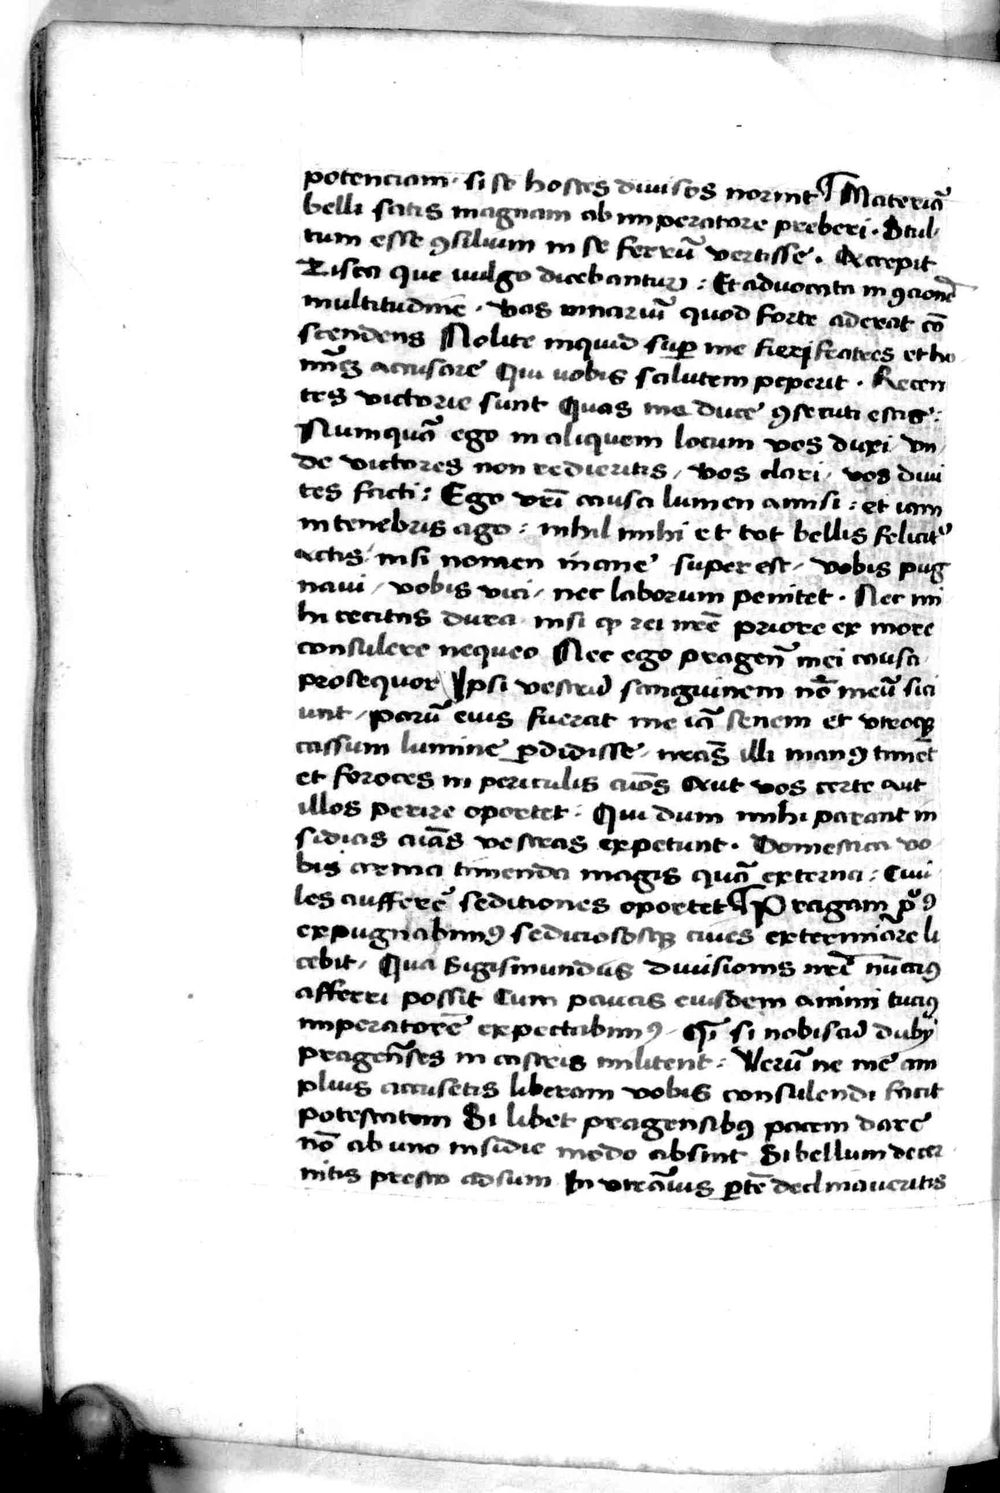 potenciam · si se hostes diuisos norint ¶ Materiā
belli satis magnam ab imperatore preberi · Stul
tum esse ꝯsilium in se ferrū vertisse · Accepit
Zisca que uulgo dicebantur : Et advocata in ꝯcionē
multitudine · vas vinariū quod forte aderat cō
scendens Nolite inquid sup me fieri fratres et ho
mīeꝫ accusare Qui uobis salutem peperit · Recen
tes victorie sunt Quas me duce ꝯsecuti estis :
Numquā ego in aliquem locum vos duxi vn
de victores non redieritis / vos clari / vos diui
tes facti : Ego vrī causa lumen amisi : et iam
in tenebris ago : nihil mihi et tot bellis felicit̾
actis / nisi nomen inane super est / vobis pug
naui / vobis vici / nec laborum penitet · Nec mi
hi cecitas dura nisi ꝙ rei nrē priore ex more
consulere nequeo Nec ego pragen̄ mei causa
prosequor Ipsi vestrū sanguinem nō meū sici
unt / parū eius fuerat me iā senem et vtroqꝫ
cassum lumine ꝑdidisse / vrās illi manꝰ timēt
et feroces in periculis aīos Aut vos certe aut
illos perire oportet : Qui dum mihi parant in
sidias aīas vestras expetunt · Domestica vo
bis arma timenda magis quā externa : Ciui
les aufferē seditiones oportet ¶ Pragam pꝰ
expugnabimꝰ sediciososqꝫ ciues exterminare li
cebit / Qua Sigismundus diuisionis nrē nūciꝰ
afferri possit Cum paucis eiusdem animi tuciꝰ
imperatorē expectabimꝰ / Qͣ si nobiscū dubij
pragen̄ses in castris militent : Verū ne me am
plius accusetis liberam vobis consulendi facit
potestatem Si libet pragensibꝰ pacem dare
nō ab uno insidie modo absint Si bellum decer
nitis presto adsum In vtrāuis ꝑtē declinaueritis